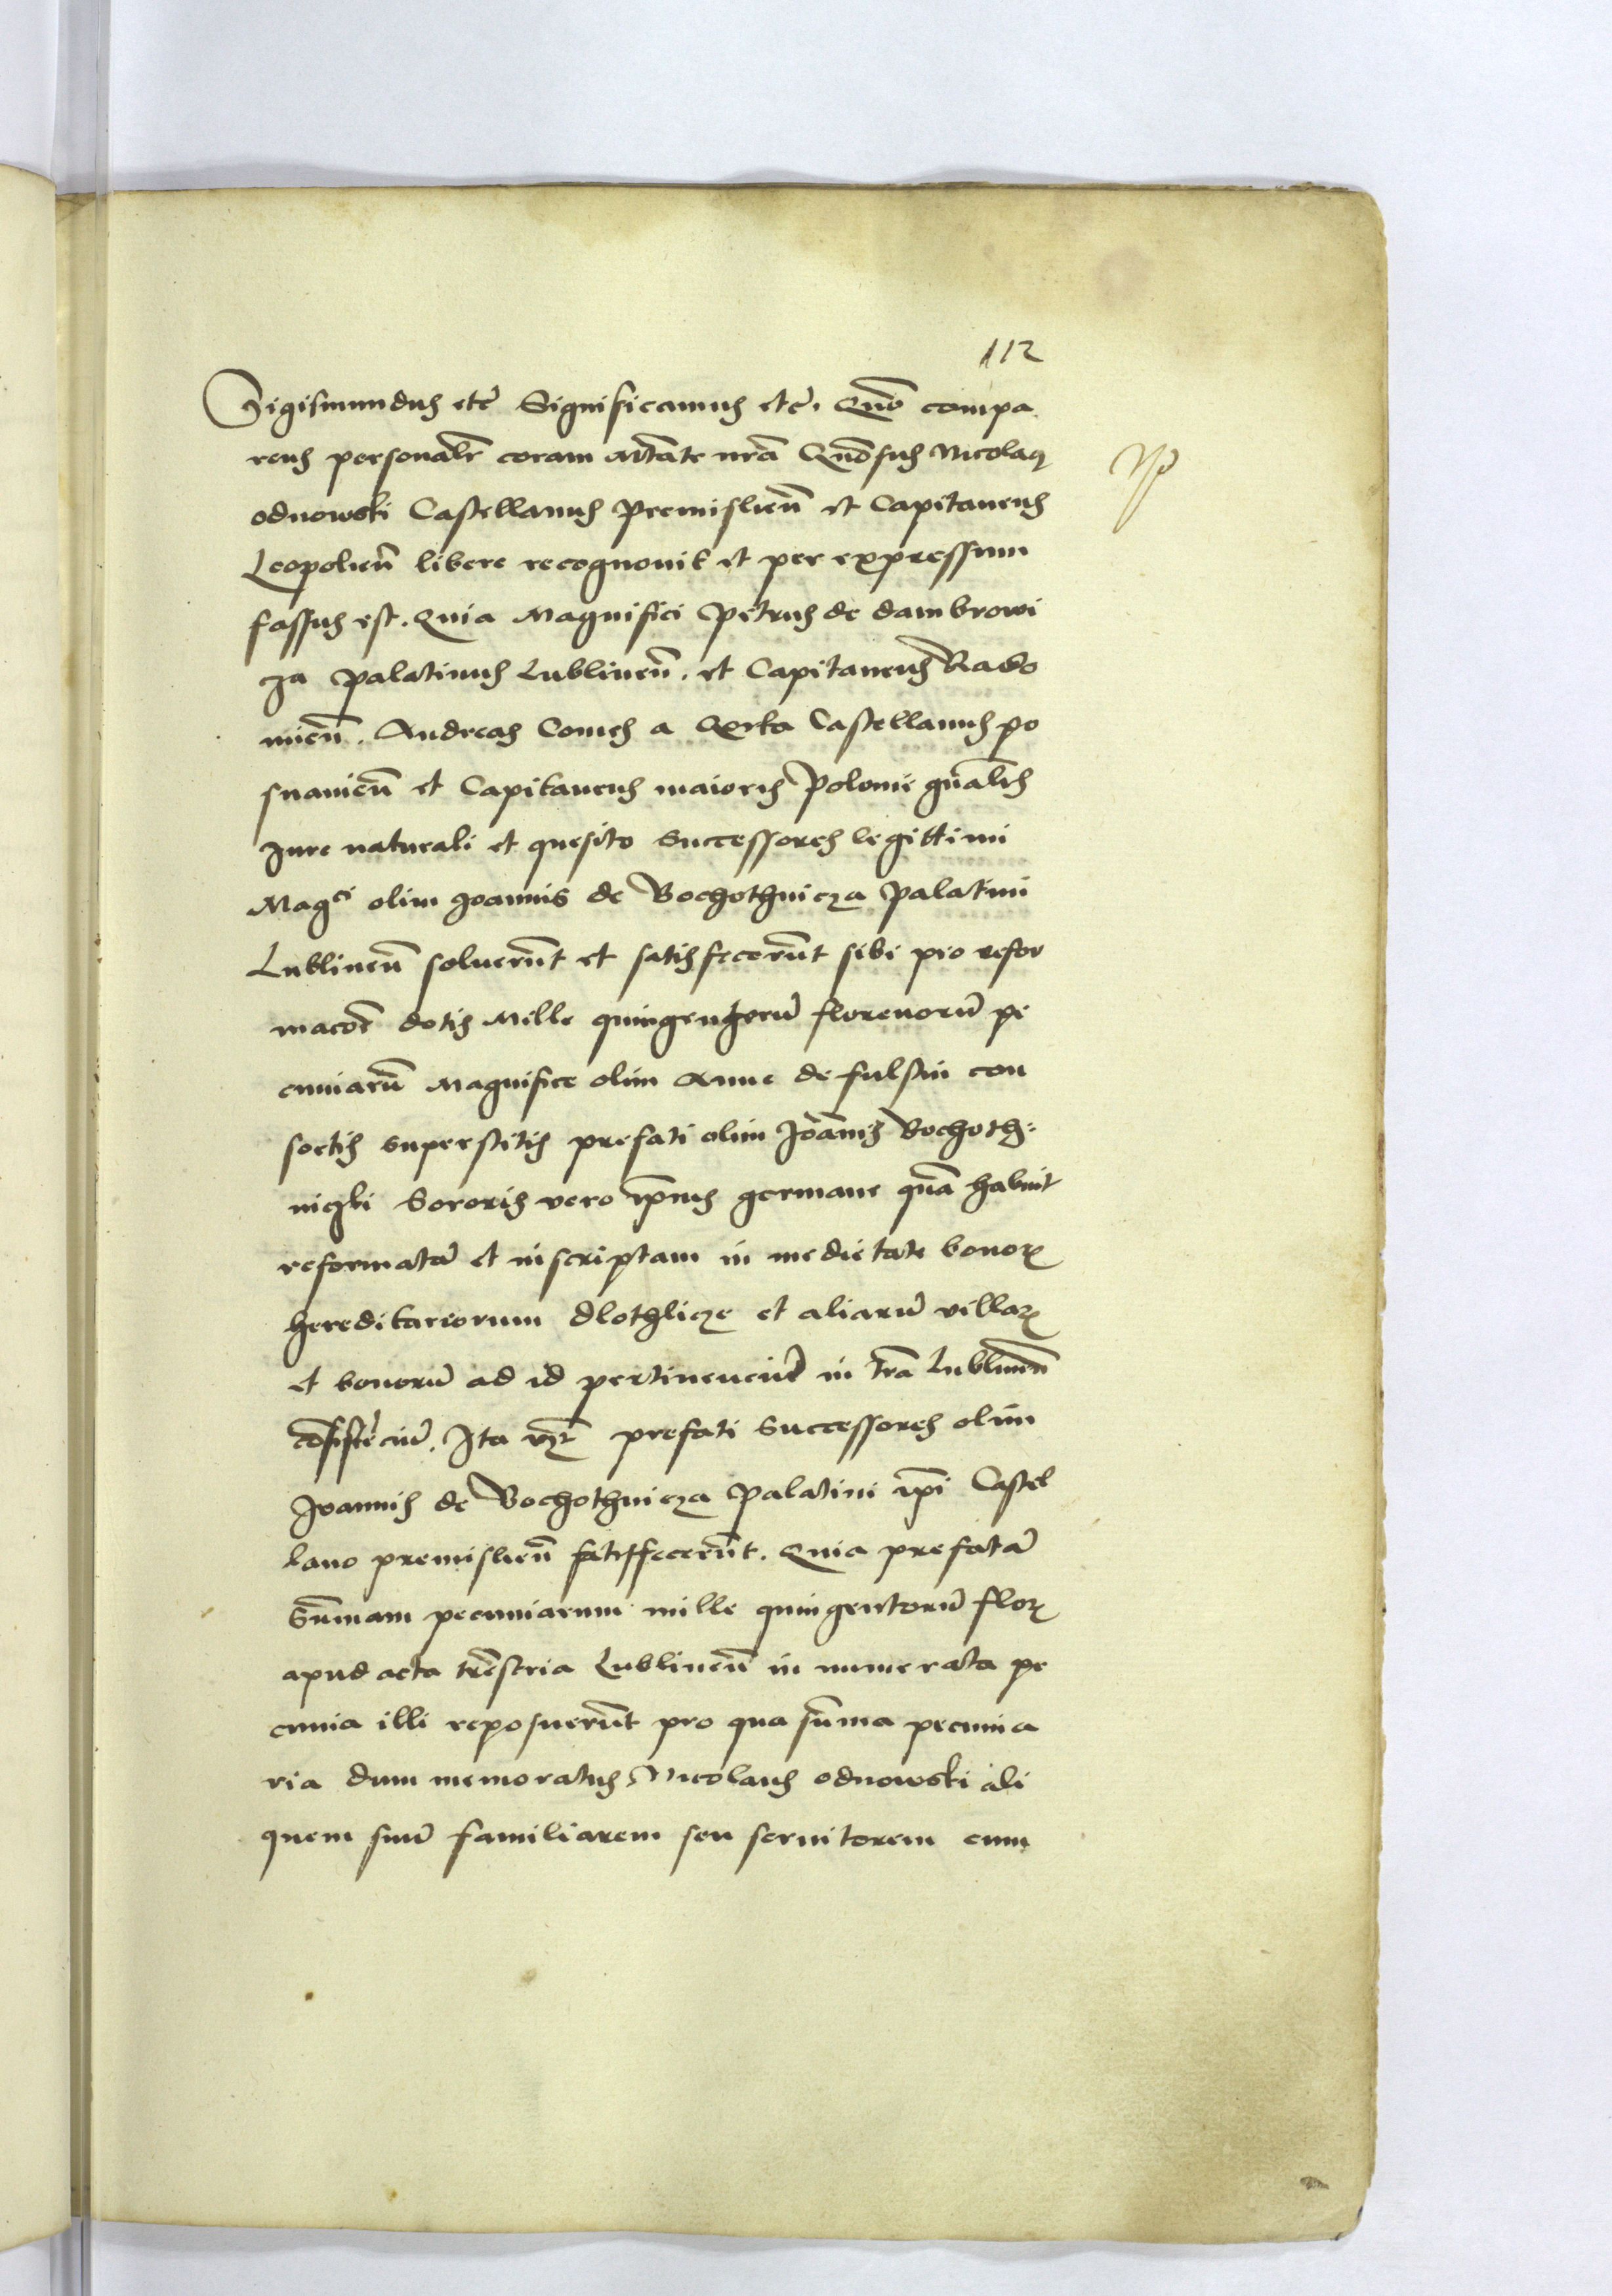 112
Sigismundus etc̄ Significamus etc̄. Quō compa
rens personalr̄ coram Mtāte nrā Gn̄dsus Nicolaus
odnowski Castellanus Premislieñ et Capitaneus
Leopolieñ libere recognovit et per expressum
fassus est. Quia Magnifici Petrus de dambrowi
cza Palatinus Lublineñ. et Capitaneus Rado
mieñ. Andreas Comes a Gorka Castellanus po
snanieñ et Capitaneus maioris Polonie gn̄alis
Iure naturali et quesito Successores legittimi
Magci olim Joannis de Bochothnicza Palatini
Lublineñ solueru̅t et satisfeceru̅t sibi pro refor
macoē dotis Mille quingentoru̅ florenoru̅ pe
cuniaru̅ Magnifice olim Anne de fulstin con
sortis superstitis prefati olim Joannis Bochoth:
niczki Sororis vero ip̄ius germane quā habuit
reformatā et inscriptam in medietate bonoꝝ
hereditariorum dlothlicze et aliaru̅ villaꝝ
et bonoru̅ ad id pertinenciu̅ in trā Lublineñ
cōsistēciu̅. Ita vz̄ prefati Successores olim
Joannis de Bochothnicza Palatini ip̄i Castel
lano premislieñ satisfeceru̅t. Quia prefatā
Sum̄am pecuniarum mille quingentoru̅ floꝝ
apud acta trēstria Lublineñ in numerata pe
cunia illi reposueru̅t pro qua sum̄a pecunia
ria dum memoratus Nicolaus odnowski ali
quem suu̅ familiarem seu seruitorem cum